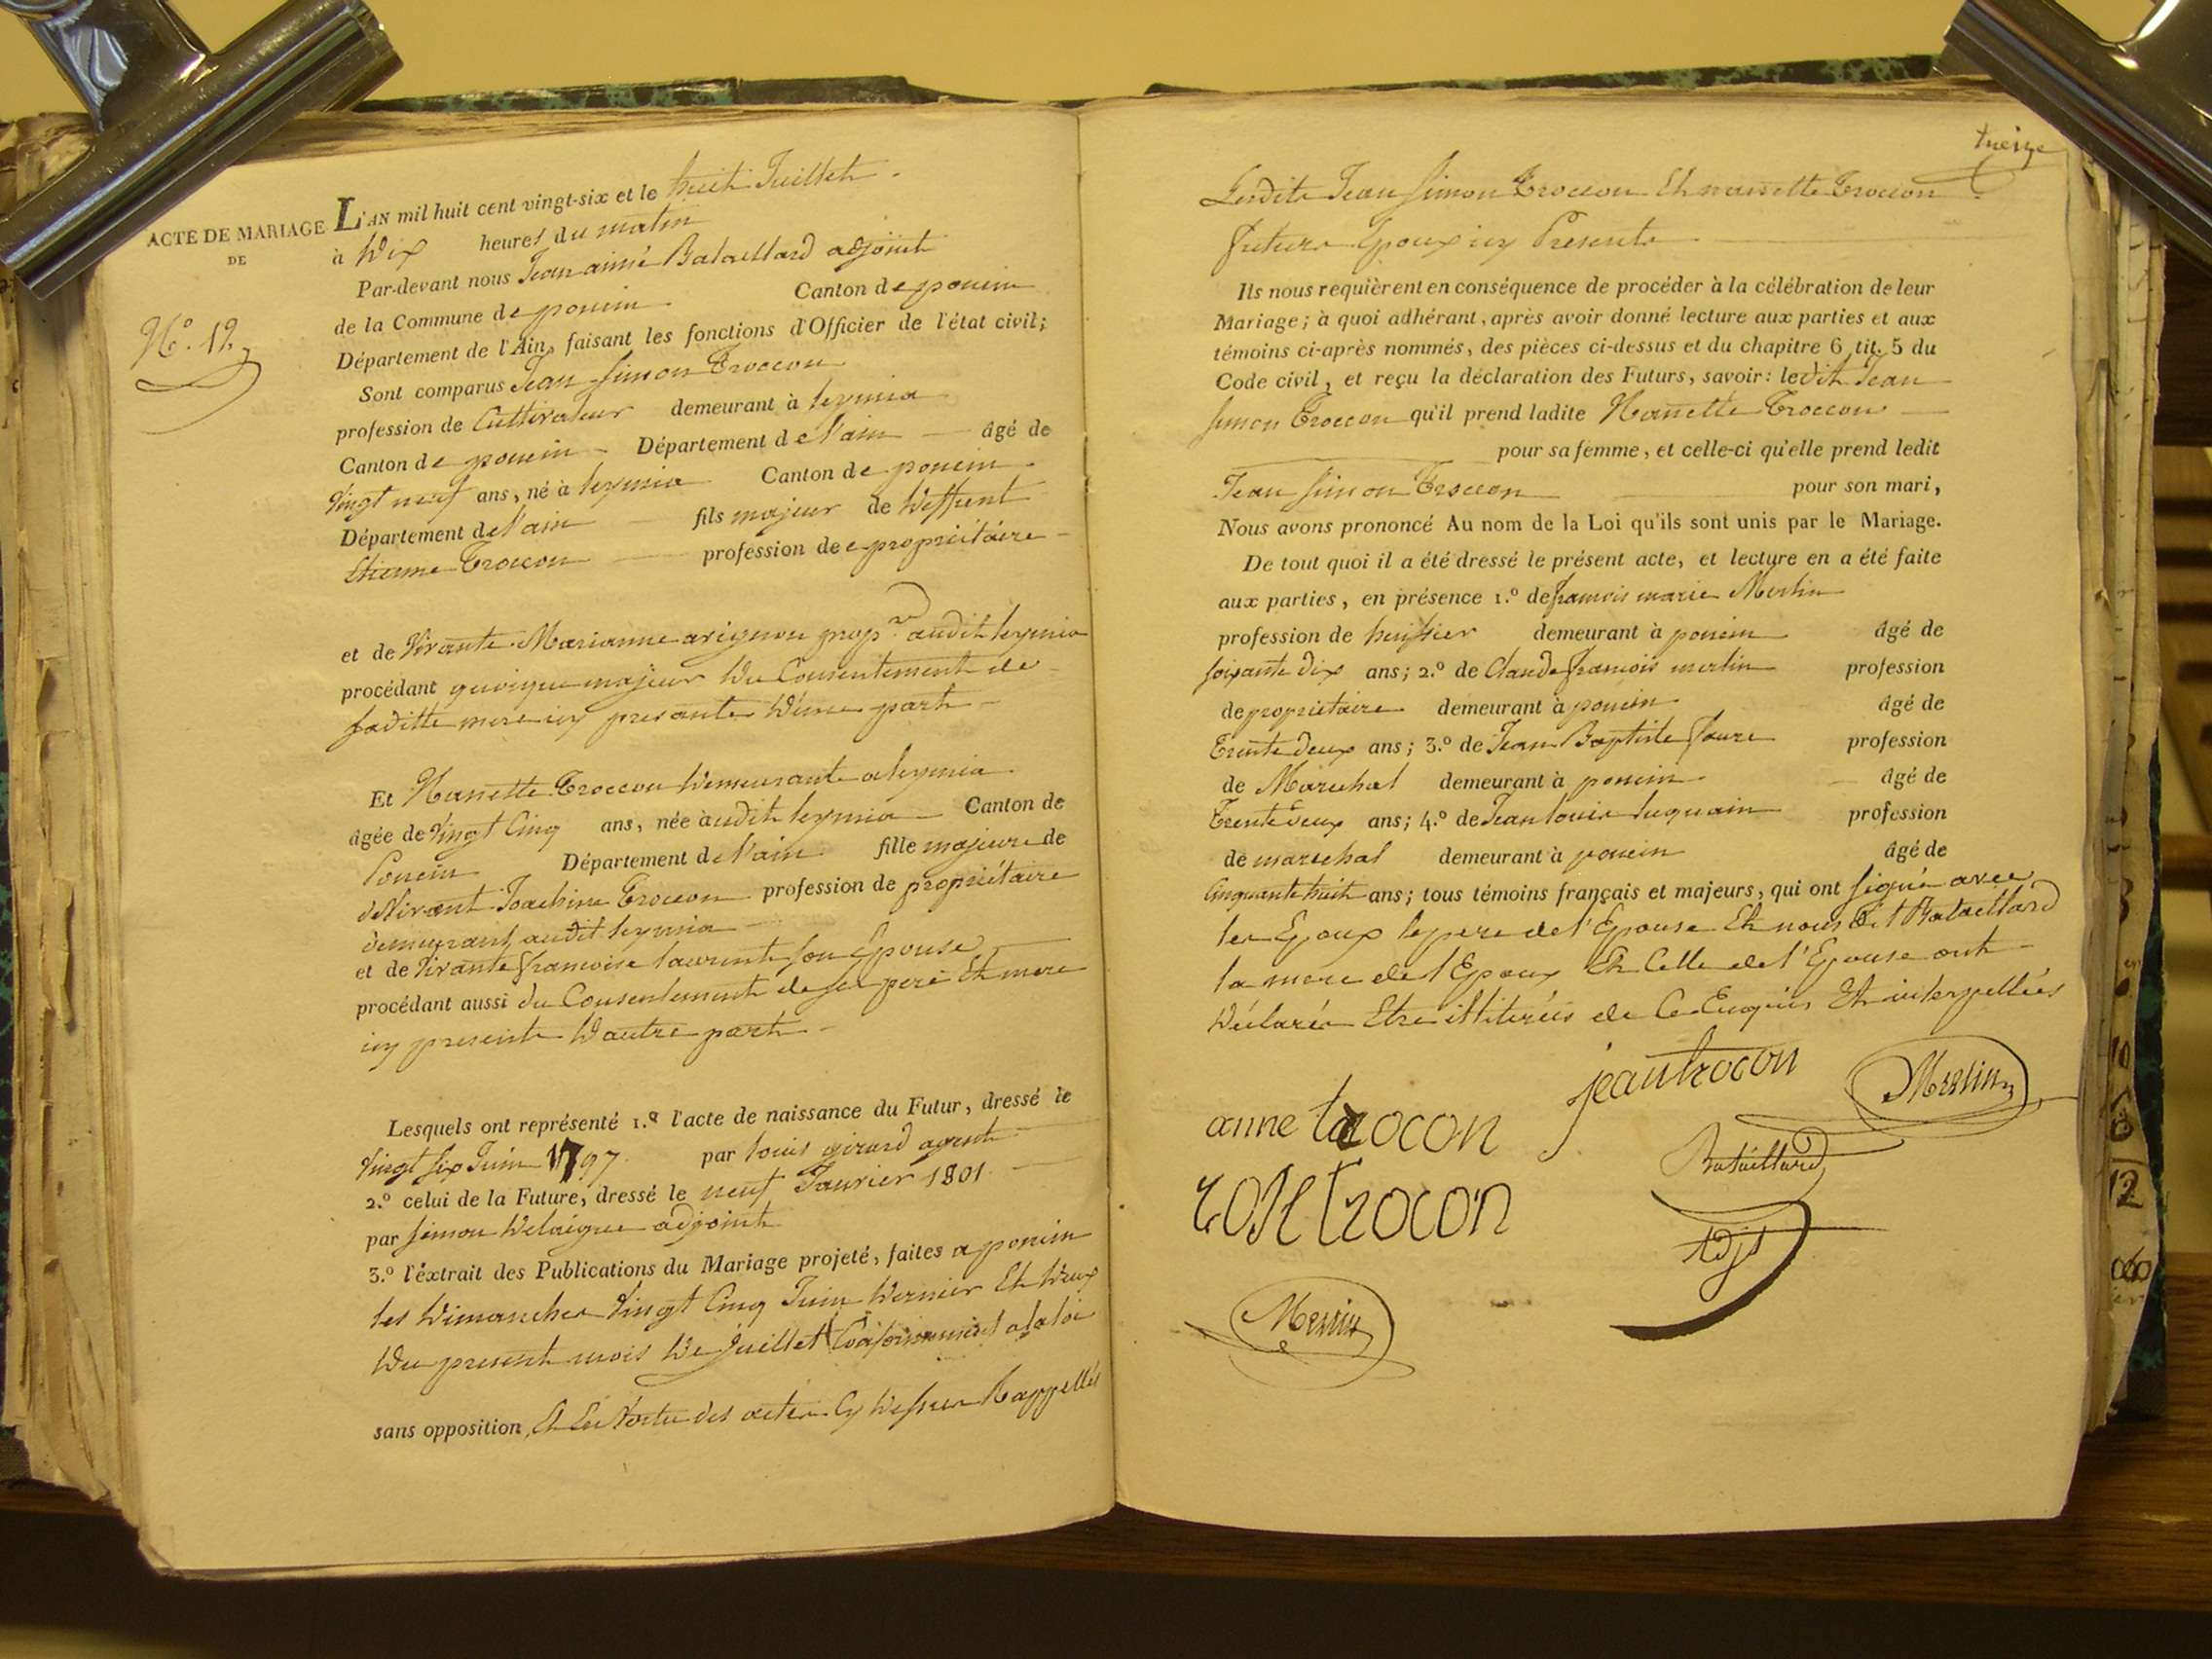 ACTE DE MARIAGE
DE
N.º 12
L'AN mil huit cent vingt-six et le huit Juillet
à Dix heures du matin
Par-devant nous Jean aimé Bataillard adjoint
de la Commune de poncin Canton de poncin
Département de l'Ain, faisant les fonctions d'Officier de l'état civil;
Sont comparus Jean Simon Troccon
profession de Cultivateur demeurant à leymia
Canton de poncin Département de l'ain âgé de
Vingt neuf ans, né à leymia Canton de poncin
Département de l'ain fils majeur de Deffunt
Etienne Troccon profession de propriétaire
et de Vivante Marianne avignon prop.re audit leymia
procédant quoique majeur Du Consentement de
saditte mere icy presente D'une part
Et Nanette Troccon Demeurante a leymia
âgée de Vingt Cinq ans, née àudit leymia Canton de
Poncin Département de l'ain fille majeure de
de Vivant Joachim Troccon profession de propriétaire
demeurant audit leymia
et de Vivante francoise laurent son Epouse
procédant aussi du Consentement de ses pere Et mere
icy presents D'autre part
Lesquels ont représenté 1.º l'acte de naissance du Futur, dressé le
Vingt six Juin 1797 par louis girard agent
2.º celui de la Future, dressé le neuf Janvier 1801
par simon Delaigue adjoint
3.º l'extrait des Publications du Mariage projeté, faites a poncin
les Dimanches Vingt Cinq Juin Dernier Et Deux
Du present mois De Juillet Conformement a la loi
sans opposition, Et En Vertu des actes Cy Dessus Rappellés
treize
Lesdits Jean Simon Troccon Et nanette Troccon
futurs Epoux icy Presents
Ils nous requièrent en conséquence de procéder à la célébration de leur
Mariage; à quoi adhérant, après avoir donné lecture aux parties et aux
témoins ci-après nommés, des pièces ci-dessus et du chapitre 6, tit. 5 du
Code civil, et reçu la déclaration des Futurs, savoir: ledit Jean
Simon Troccon qu'il prend ladite Nanette Troccon
pour sa femme, et celle-ci qu'elle prend ledit
Jean Simon Troccon pour son mari,
Nous avons prononcé Au nom de la Loi qu'ils sont unis par le Mariage.
De tout quoi il a été dressé le présent acte, et lecture en a été faite
aux parties, en présence 1.º de francois marie Merlin
profession de huissier demeurant à poncin âgé de
soixante dix ans; 2.º de Claude francois merlin profession
de propriétaire demeurant à poncin âgé de
Trente deux ans; 3.º de Jean Baptiste faure profession
de Marechal demeurant à poncin âgé de
Trente deux ans; 4.º de Jean louis luquain profession
de marechal demeurant à poncin âgé de
Cinquante huit ans; tous témoins français et majeurs, qui ont signé avec
les Epoux le pere de l'Epouse Et nous dit Bataillard
la mere de l'Epoux Et Celle de l'Epouse ont
Déclaré Etre illitérées de Ce Enquises Et interpellées
jean trocon
Merlin
anne trocon
Bataillard
rose trocon
Adjt
Merlin
12